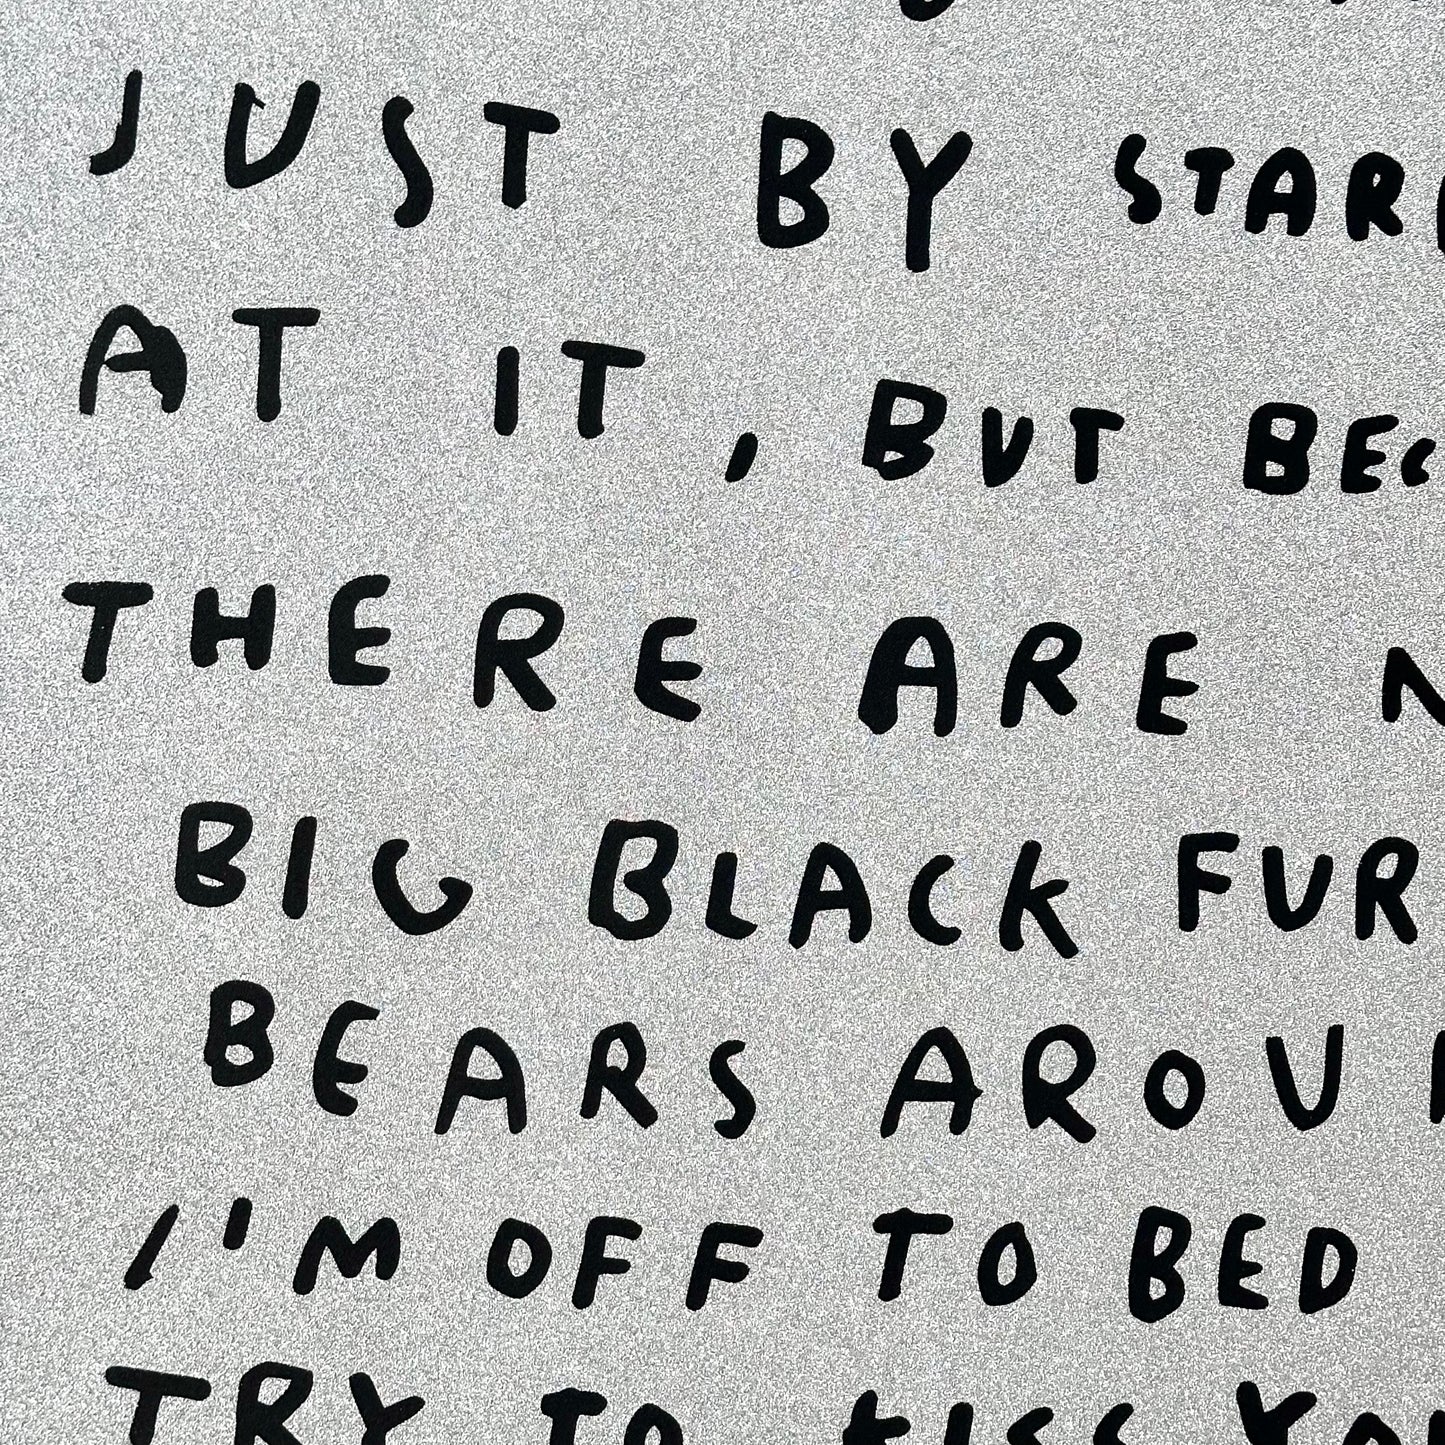 JUST BY STAR
AT IT, BUT BEC
THERE ARE N
BIG BLACK FUR
BEARS AROU
I'M OFF TO BED
TRY TO KISS YO